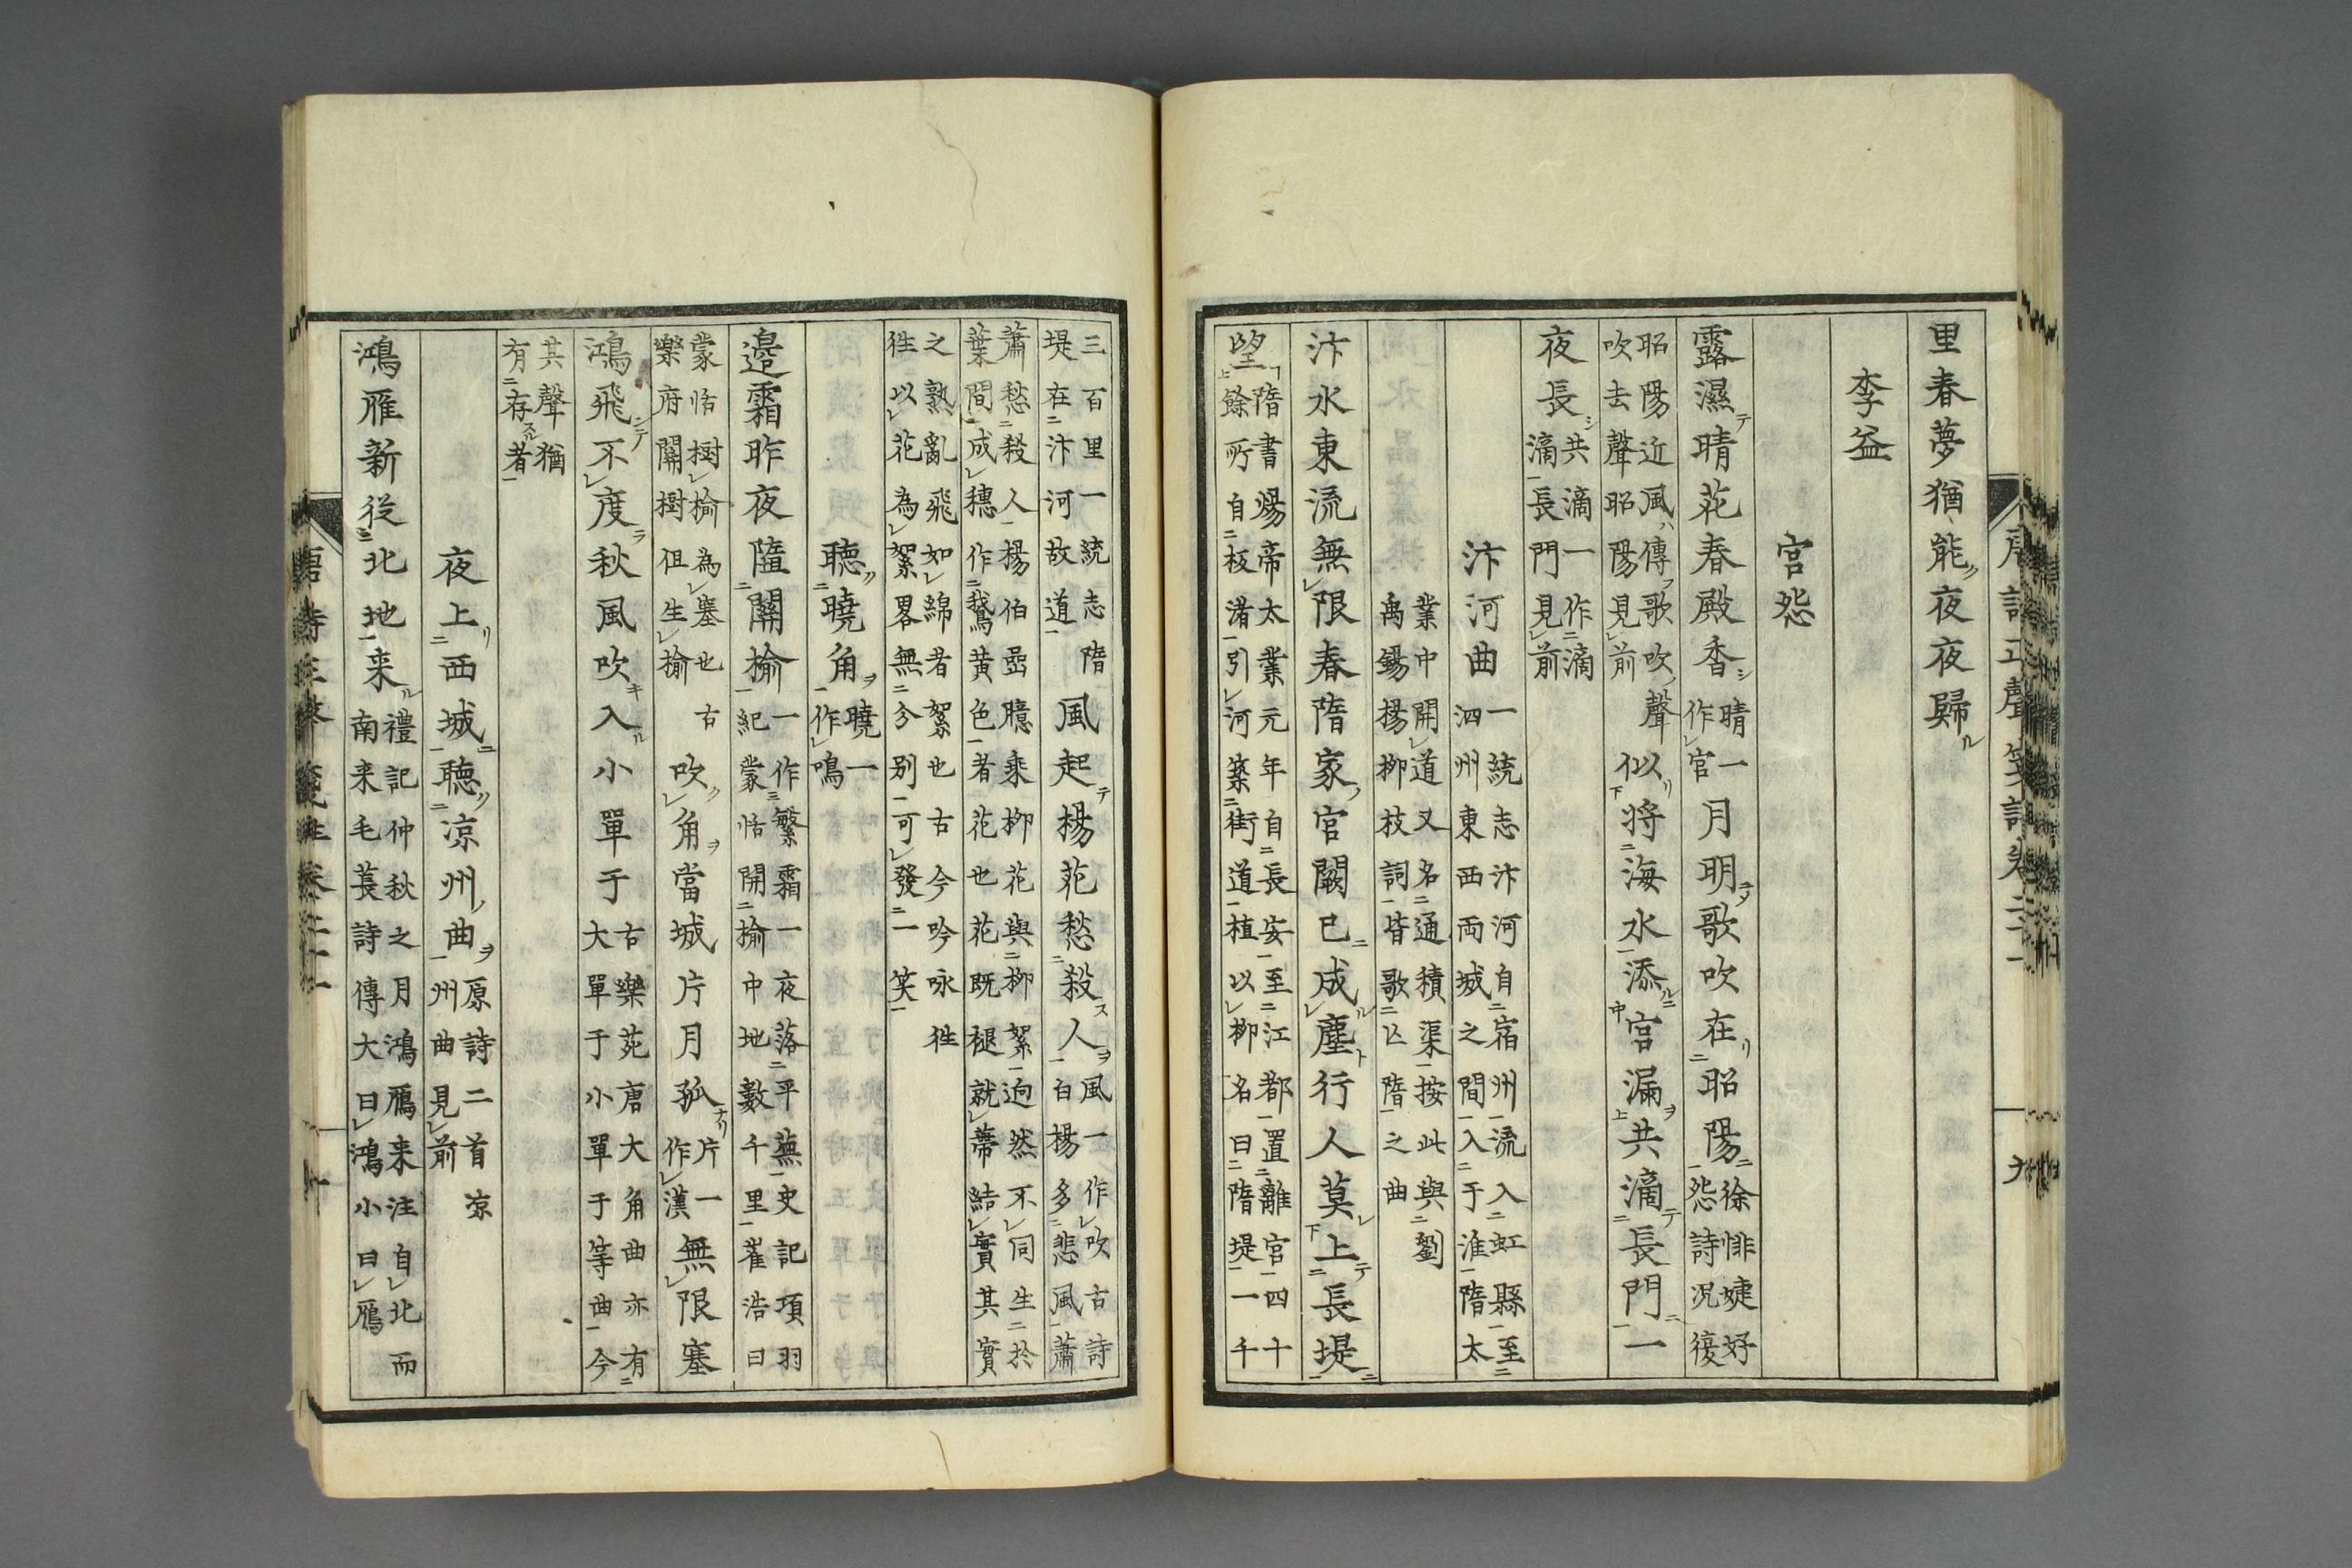 里春夢猶能夜夜歸
李益
宮怨
露濕晴花春殿香晴一作官月明歌吹在昭陽徐悱婕好怨詩况復
昭陽近風傳歌吹聲吹去聲昭陽見前似將海水添宮漏共滴長門一
夜長共滴一作滴滴長門見前
汴河曲一統志汴河自宿州流入虹縣至泗州東西両城之間入于淮隋太
業中開道又名通積渠按此與劉禹錫楊柳枝詞皆歌亾隋之曲
汴水東流無限春隋家宮闕已成塵行人莫上長堤
望隋書煬帝太業元年自長安至江都置離宮四十餘所自板渚引河築街道植以柳名曰隋堤一千
三百里一統志隋堤在汴河故道風起楊花愁殺人風一作吹古詩白楊多悲風蕭
蕭愁殺人楊伯嵒臆乘柳花與柳絮逈然不同生於葉間成穗作鵞黄色者花也花既褪就蔕結實其實
之熟亂飛如綿者絮也古今吟咏徃徃以花為絮畧無分别可發一笑
聽曉角曉一作鳴
邉霜昨夜隨關榆一作繁霜一夜落平蕪史記項羽紀蒙恬開榆中地數千里崔浩曰
蒙恬樹榆為塞也古樂府關樹但生榆吹角當城片月孤片一作漢無限塞
鴻飛不度秋風吹入小單于古樂苑唐大角曲亦有大單于小單于等曲今
其聲猶有存者
夜上西城聽涼州曲原詩二首涼州曲見前
鴻雁新從北地来禮記仲秋之月鴻鴈来注自北而南来毛萇詩傳大曰鴻小曰鴈